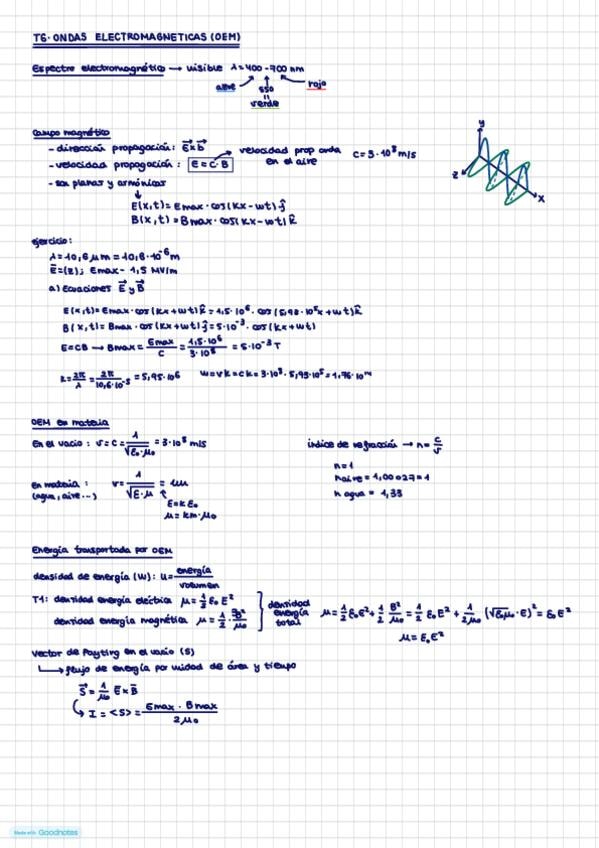 T6. ONDAS ELECTROMAGNETICAS (OEM)
Espectro electromagnético → visible λ = 400 - 700 nm
azul 550 rojo
verde
Campo magnético
- dirección propagación: E⃗xb⃗
- velocidad propagación: E = C · B velocidad prop onda en el aire c = 3 · 10⁸ m/s
- son planas y armónicas
E(x,t) = Emax · cos(Kx - wt) ĵ
B(x,t) = Bmax · cos(Kx - wt) k̂
y
z
x
ejercicio:
λ = 10,6 μm = 10,6 · 10⁻⁶ m
E⃗ = (z); Emax - 1,5 MV/m
a) Ecuaciones E⃗ y B⃗
E(x,t) = Emax · cos(Kx + wt) k̂ = 1,5 · 10⁶ · cos(5,93 · 10⁵x + wt) k̂
B(x,t) = Bmax · cos(Kx + wt) ĵ = 5 · 10⁻³ · cos(kx + wt)
E = CB → Bmax = Emax / C = 1,5 · 10⁶ / 3 · 10⁸ = 5 · 10⁻³ T
k = 2π / λ = 2π / 10,6 · 10⁻⁵ = 5,93 · 10⁶ w = vk = ck = 3 · 10⁸ · 5,93 · 10⁵ = 1,76 · 10¹⁴
OEM en materia
En el vacio: v = c = 1 / √ε₀ · μ₀ = 3 · 10⁸ m/s
índice de refracción → n = c / v
n = 1
n aire = 1,00027 = 1
n agua = 1,33
en materia: v = 1 / √ε · μ =
(agua, aire...)
ε = k ε₀
μ = km · μ₀
Energía transportada por OEM
densidad de energía (u): u = energía / volumen
T1: densidad energía eléctrica μ = 1/2 ε₀ E²
densidad energía magnética μ = 1/2 · B² / μ₀
densidad energía total μ = 1/2 ε₀E² + 1/2 B²/μ₀ = 1/2 ε₀ E² + 1/2μ₀ (√ε₀μ₀ · E)² = ε₀ E²
μ = ε₀E²
Vector de Poyting en el vacío (S)
↳ flujo de energía por unidad de área y tiempo
S⃗ = 1/μ₀ E⃗ x B⃗
I = <S> = Emax · Bmax / 2μ₀
Made with Goodnotes